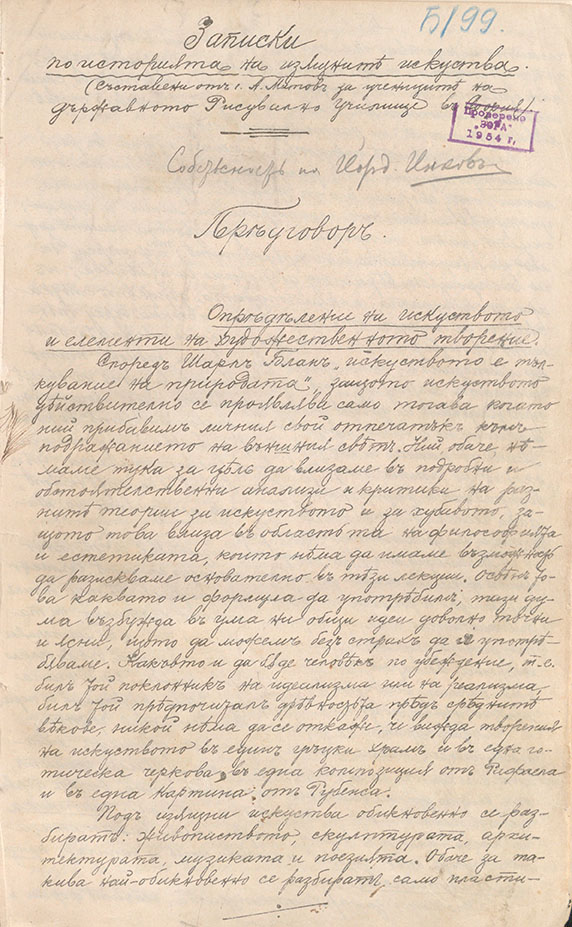 Б/99.
Записки
по историята на изящнитѣ искуства.
(Съставени отъ г. А. Митовъ за ученицитѣ на
държавното Рисувално училище въ София).
Проверено
1954 г.
Собственость на Йорд.
Прѣдговоръ.
Опрѣдѣление на искуството
и елементи на художественното творение.
Споредъ Шарлъ Бланъ „искуството е тъл-
кувание на природата", защото искуството
дѣйствително се проявлява само тогава когато
ний прибавимъ личния свой отпечатъкъ къмъ
подражанието на външния свѣтъ. Ний обаче, нѣ-
маме тука за цѣль да влизаме въ подробни и
обстоятелственни анализи и критики, на раз-
нитѣ теории за искуството и за хубавото, за-
щото това влиза въ областьта на философията
и естетиката, които нѣма да имаме възможность
да разискваме основателно въ тѣзи лекции. Освѣнъ то-
ва каквато и формула да употрѣбимъ, тази ду-
ма възбужда въ ума ни общи идеи доволно точни
и ясни, щото да можемъ безъ страхъ да я употрѣ-
бяваме. Какъвто и да бѫде человѣкъ по убеждение, т.е.
билъ той поклонникъ на идеализма или на реализма,
билъ той прѣдпочиталъ дрѣвностьта прѣдъ срѣднитѣ
вѣкове, никой нѣма да се откаже, че вижда творения
на искуството въ единъ гръцки храмъ и въ една го-
тическа черкова, въ една композиция отъ Рафаела
и въ една картина отъ Рубенса.
Подъ изящни искуства обикновенно се раз-
биратъ: живописството, скулптурата, архи-
тектурата, музиката и поезията. Обаче за та-
кива най-обикновенно се разбиратъ само пласти-